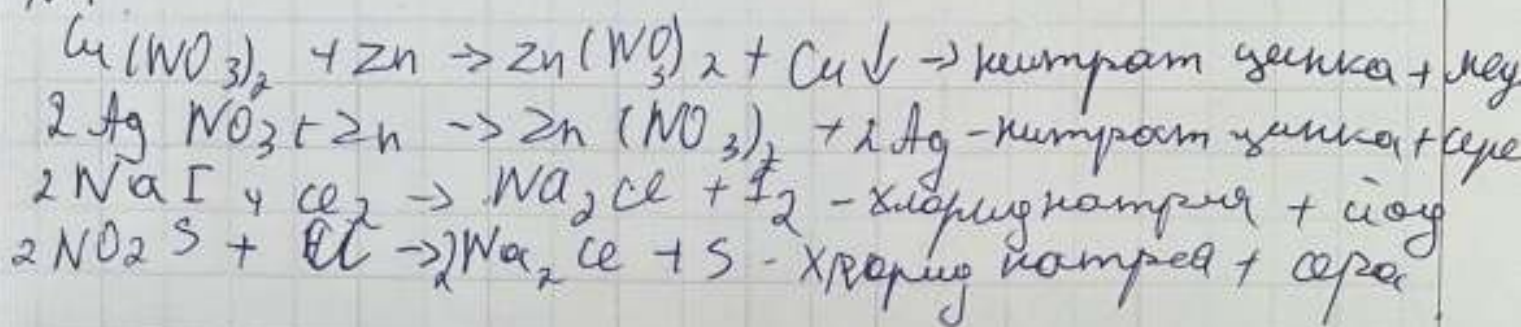 Cu(NO₃)₂ + Zn → Zn(NO₃)₂ + Cu↓ → нитрат цинка + мед
2AgNO₃ + Zn → Zn(NO₃)₂ + 2Ag - нитрат цинка + сере
2NaI + Cl₂ → Na₂Cl + I₂ - хлорид натрия + йод
2NO₂S + Cl → 2Na₂Cl + S - хлорид натрея + сера